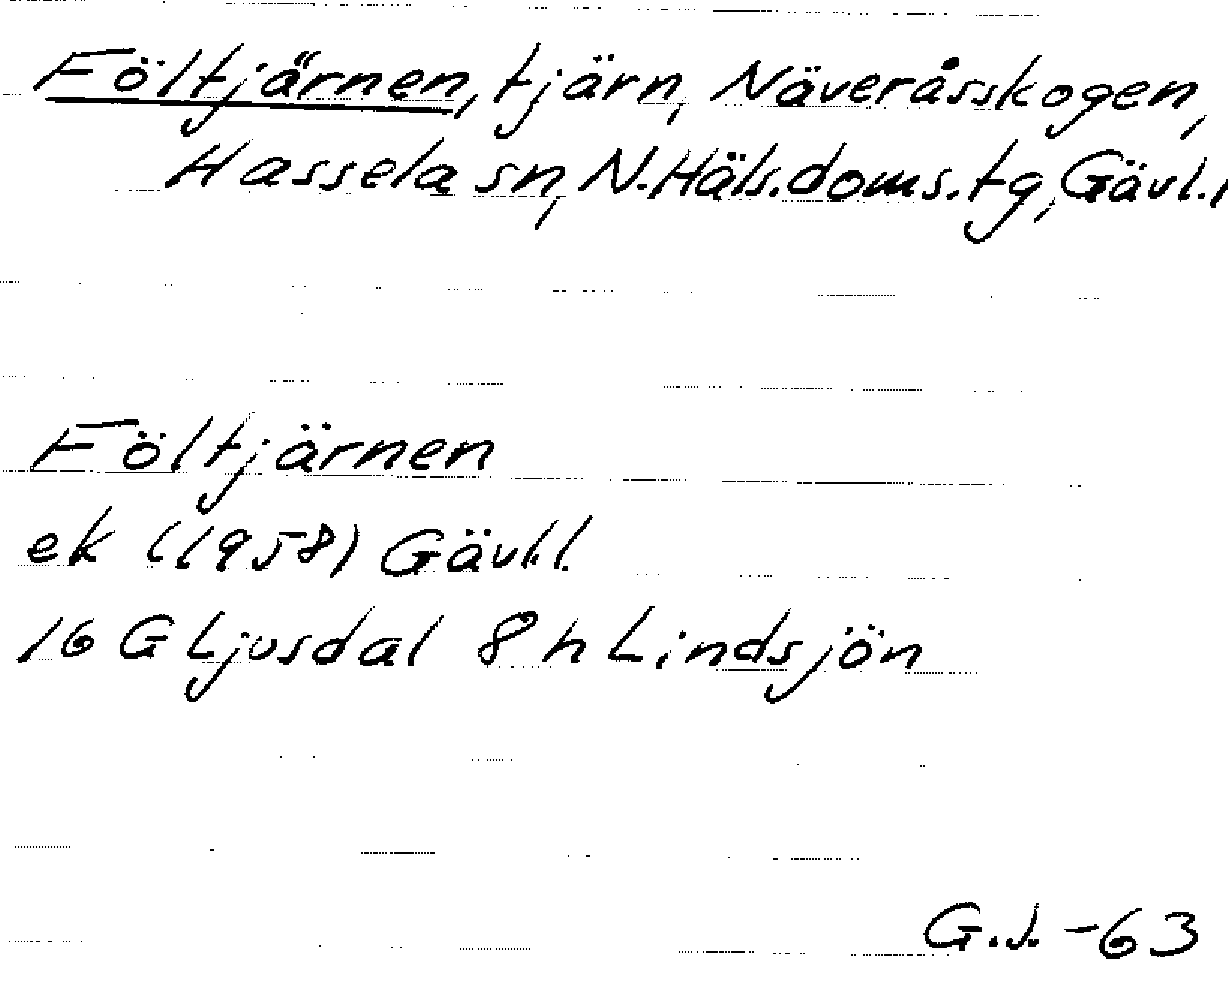 Föltjärnen, tjärn, Näveråsskogen,
Hassela sn, N. Häls. doms. tg, Gävl. l
Föltjärnen
ek (1958) Gävl.l.
16 G Ljusdal 8 h Lindsjön
G.J. -63